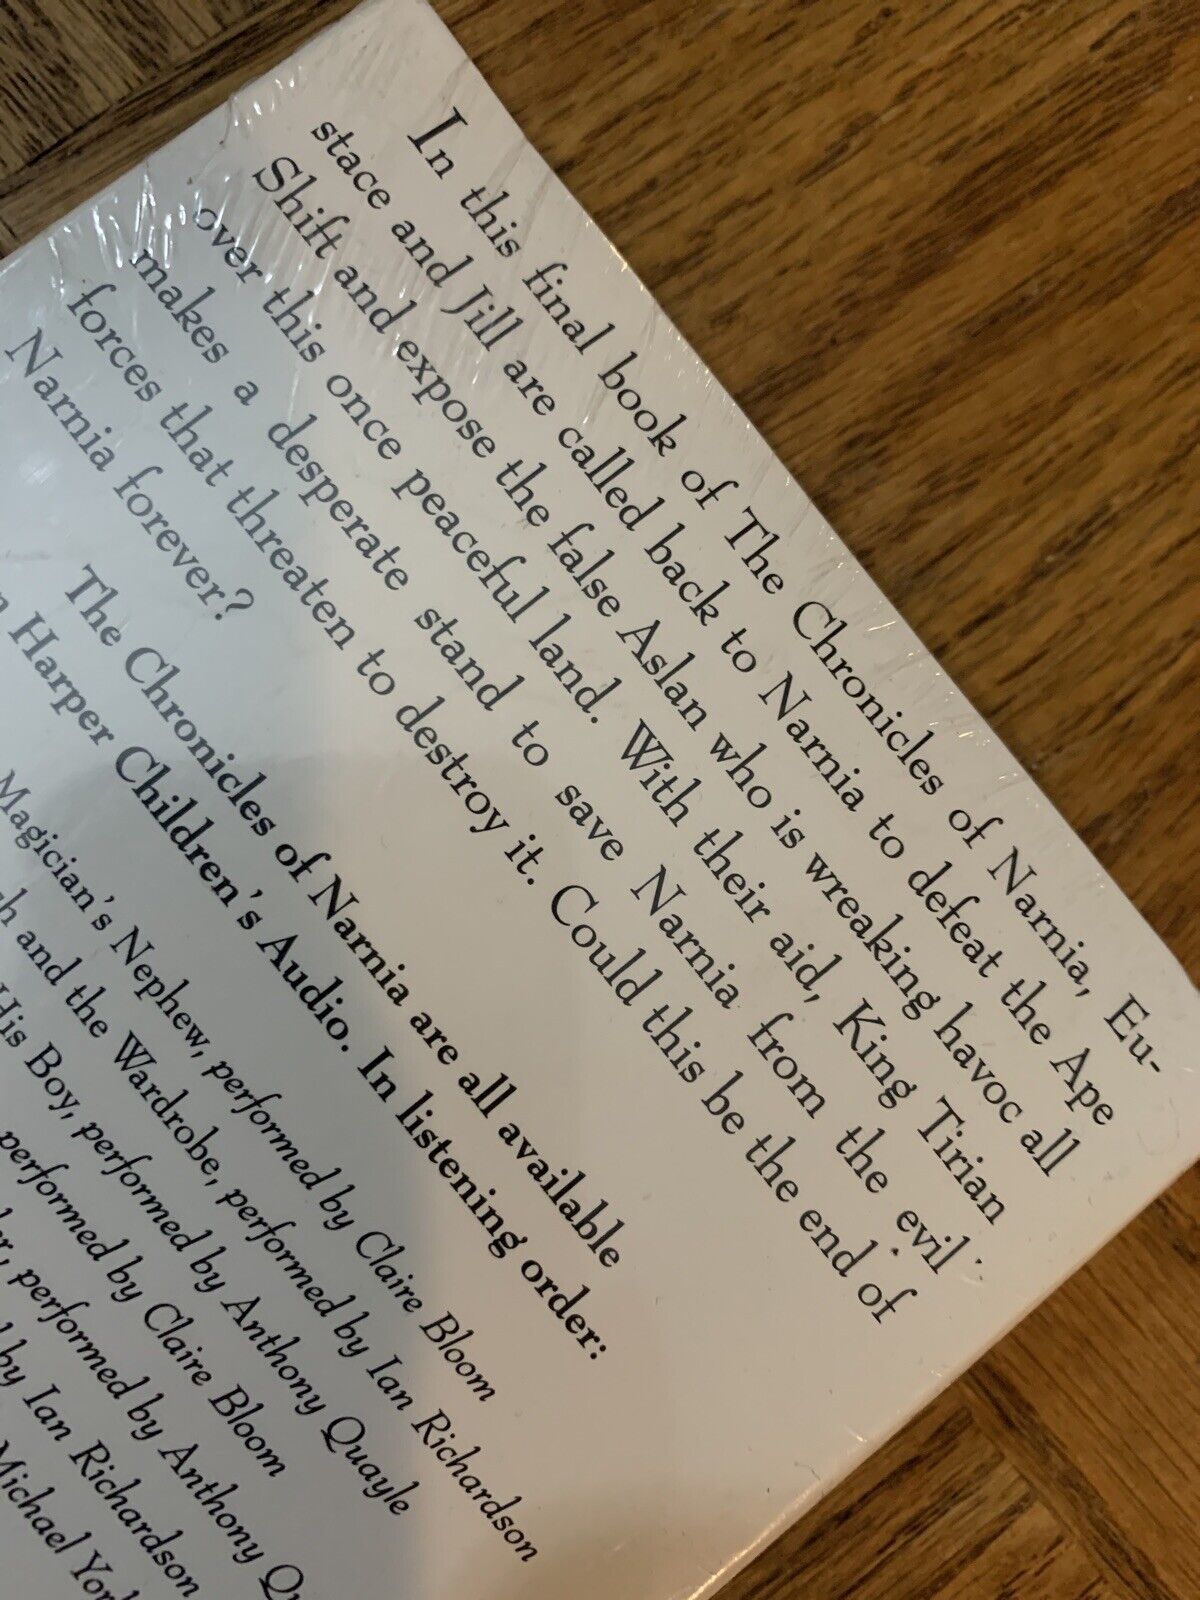 In this final book of The Chronicles of Narnia, Eu-
stace and Jill are called back to Narnia to defeat the Ape
Shift and expose the false Aslan who is wreaking havoc all
over this once peaceful land. With their aid, King Tirian
makes a desperate stand to save Narnia from the evil
forces that threaten to destroy it. Could this be the end of
Narnia forever?
The Chronicles of Narnia are all available
Harper Children's Audio. In listening order:
Magician's Nephew, performed by Claire Bloom
and the Wardrobe, performed by Ian Richardson
His Boy, performed by Anthony Quayle
performed by Claire Bloom
performed by Anthony
by Ian Richardson
Michael